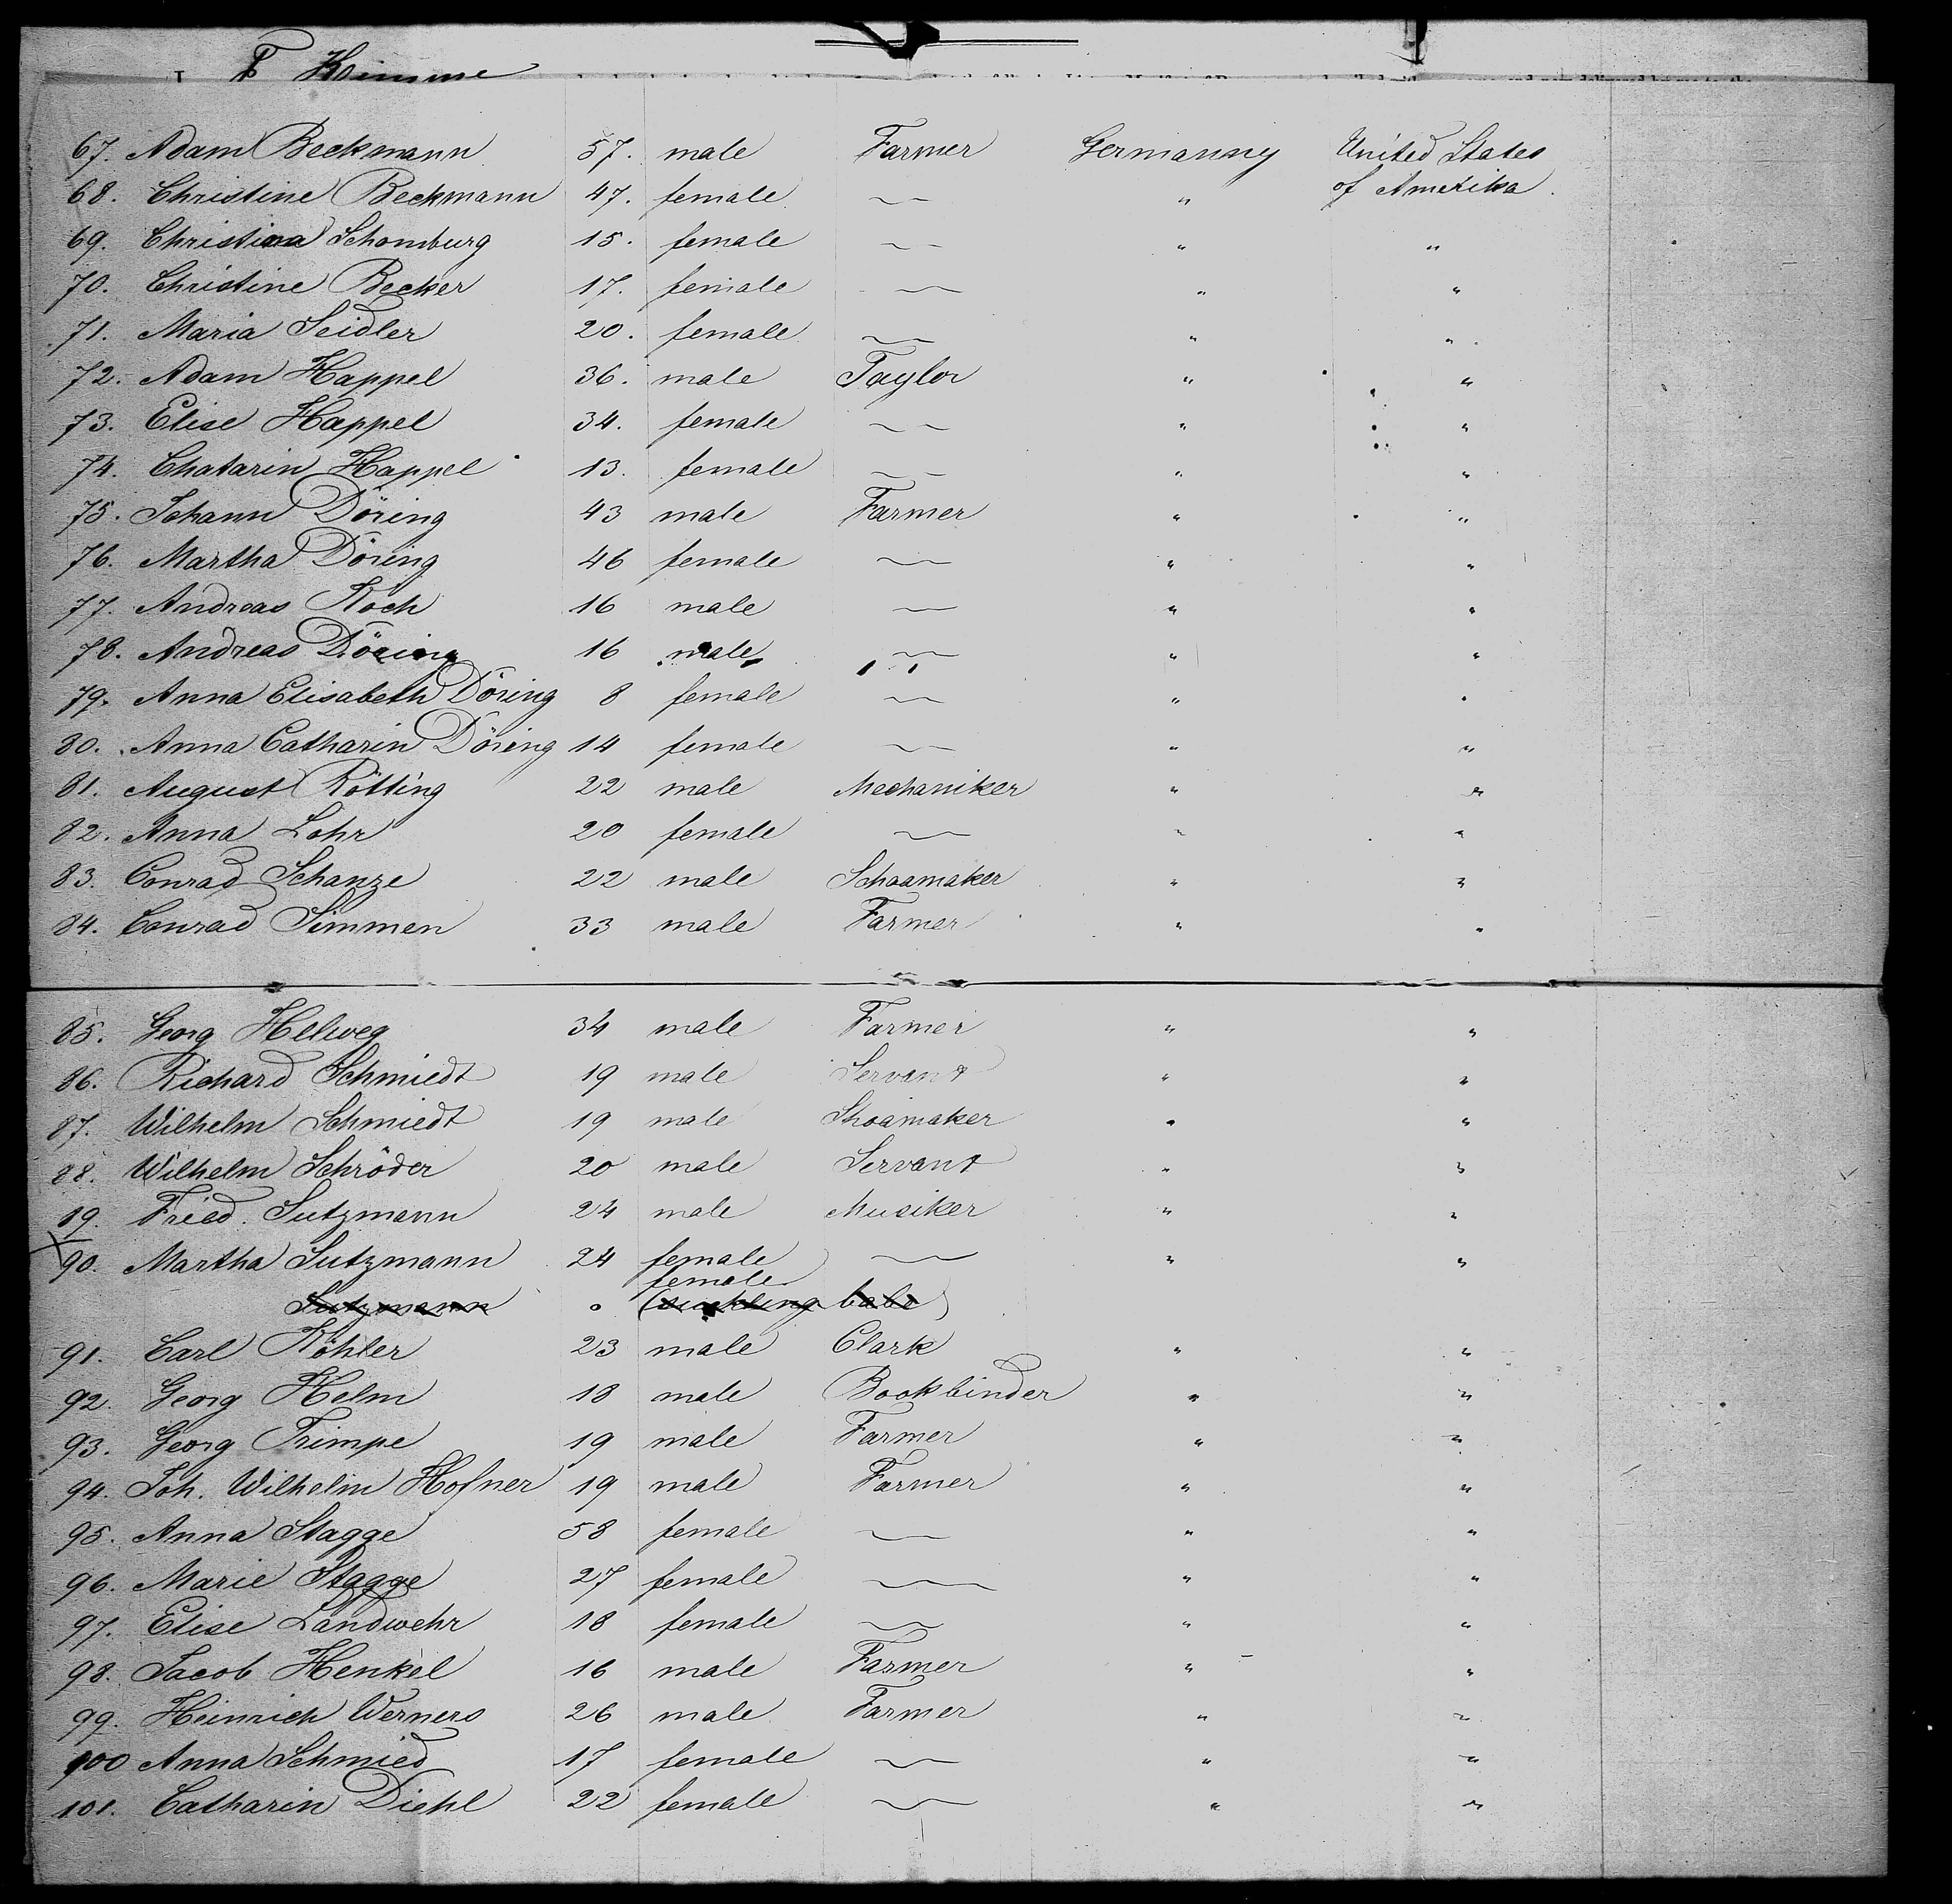 Kimme
67. Adam Beckmann 57. male Farmer Germanny United States
68. Christine Beckmann 47. female — " of Amerika.
69. Christina Schomburg 15. female — " "
70. Christine Becker 17. female — " "
71. Maria Seidler 20. female — " "
72. Adam Happel 36. male Taylor " "
73. Elise Happel 34. female — " "
74. Chatarin Happel 13. female — " "
75. Johann Döring 43 male Farmer " "
76. Martha Döring 46 female — " "
77. Andreas Koch 16 male — " "
78. Andreas Döring 16 male — " "
79. Anna Elisabeth Döring 8 female — " "
80. Anna Catharin Döring 14 female — " "
81. August Rötting 22 male Mechaniker " "
82. Anna Lohr 20 female — " "
83. Conrad Schanze 22 male Schoamaker " "
84. Conrad Simmen 33 male Farmer " "
85. Georg Helweg 34 male Farmer " "
86. Richard Schmiedt 19 male Servant " "
87. Wilhelm Schmiedt 19 male Shoamaker " "
88. Wilhelm Schröder 20 male Servant " "
89. Fried. Sutzmann 24 male Musiker " "
90. Martha Sutzmann 24 female — " "
female
Sutzmann (suckling babe)
91. Carl Köhler 23 male Clark " "
92. Georg Helm 18 male Bookbinder " "
93. Georg Trimpe 19 male Farmer " "
94. Joh. Wilhelm Hofner 19 male Farmer " "
95. Anna Stagge 58 female — " "
96. Marie Stagge 27 female — " "
97. Elise Landwehr 18 female — " "
98. Jacob Henkel 16 male Farmer " "
99. Heinrich Werners 26 male Farmer " "
100 Anna Schmied 17 female — " "
101. Catharin Diehl 22 female — " "